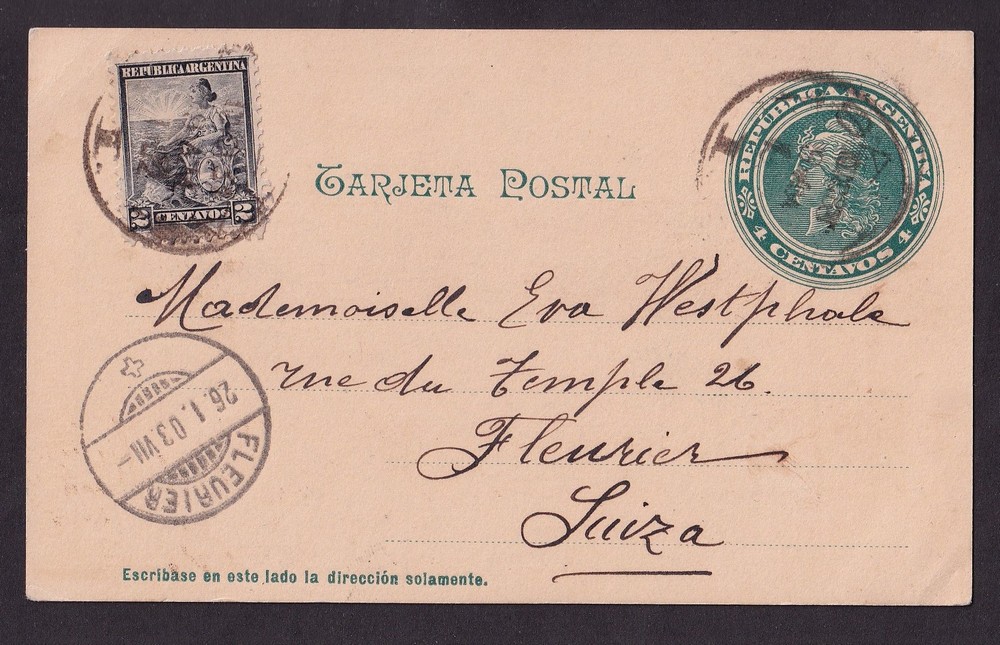 REPUBLICA ARGENTINA
2 CENTAVOS 2
TARJETA POSTAL
REPUBLICA ARGENTINA
4 CENTAVOS 4
Mademoiselle Eva Westphale
rue du Temple 26.
Fleurier
Suiza
26.1.03 VII-
FLEURIER
Escríbase en este lado la dirección solamente.